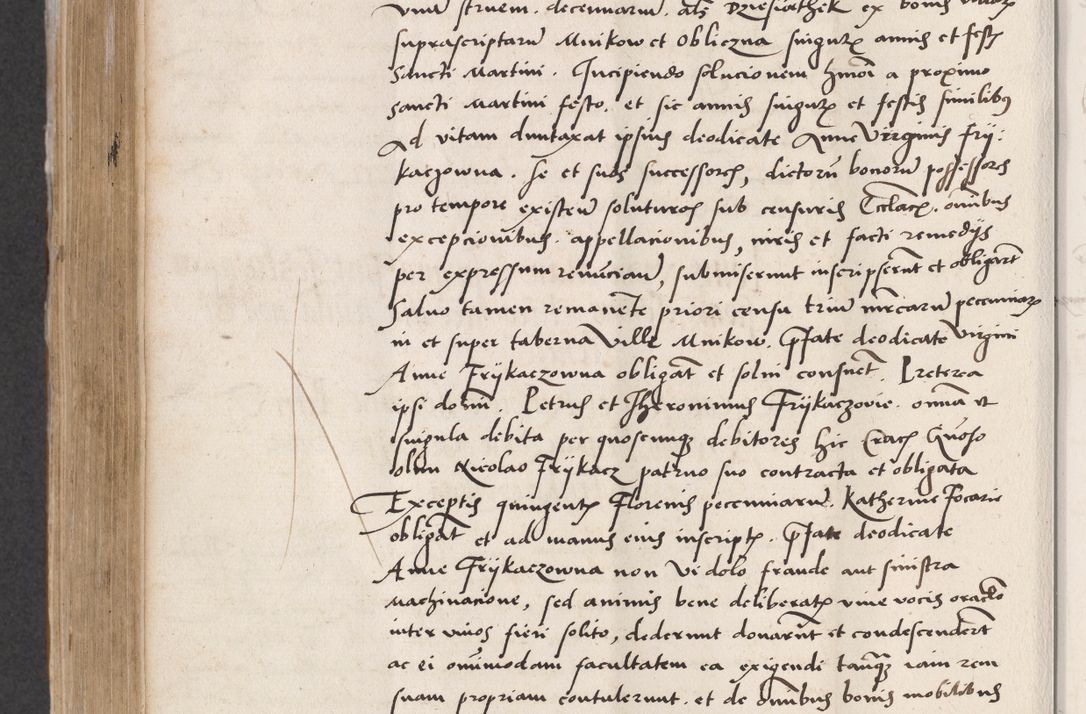 unu struem decennarum als Dziesiathek ex bonis villarum
suprascriptaru Mnikow et Obliczna singul annis et fest
Sancti Martini. Incipiendo solucionem hmoi a proximo
sancti Martini festo. et sic annis singul et festis similibus
Ad vitam duntaxat ipsius deodicate Anne Virginis Frÿ:
kaczowna. Se et suos successores, dictoru bonoru possessores
pro tempore existen soluturos sub censuris Ecclac. omnibus
excepcionibus. appellacionibus, iuris et facti remedÿs
per expressum renuncian, submiserunt inscripserunt et obligarunt
Salvo tamen remanente priori censu trium mrcaru pecuniar
in et super taberna Ville Mnikow. pfate deodicate virgini
Anne Frÿkaczowna obligat et solui consuet. Preterea
ipsi domi. Petrus et Hieronimus Frÿkaczovie. omia et
singula debita per quoscunq debitores hic Crac Gnoso
olim Nicolao Frÿkacz patruo suo contracta et obligata
Exceptis quingent Florenis pecuniaru. Katherine Focarie
obligat et ad manus eius inscript. pfate deodicate
Anne Frÿkaczowna non vi dolo fraude aut sinistra
machinacione, sed animis bene deliberat vive vocis oraclo
inter vivos fieri solito, dederunt donarunt et condescenderunt
ac ei omimodam facultatem ea exigendi tanq iam rem
suam propriam contulerunt. et de omibus bonis mobilibus